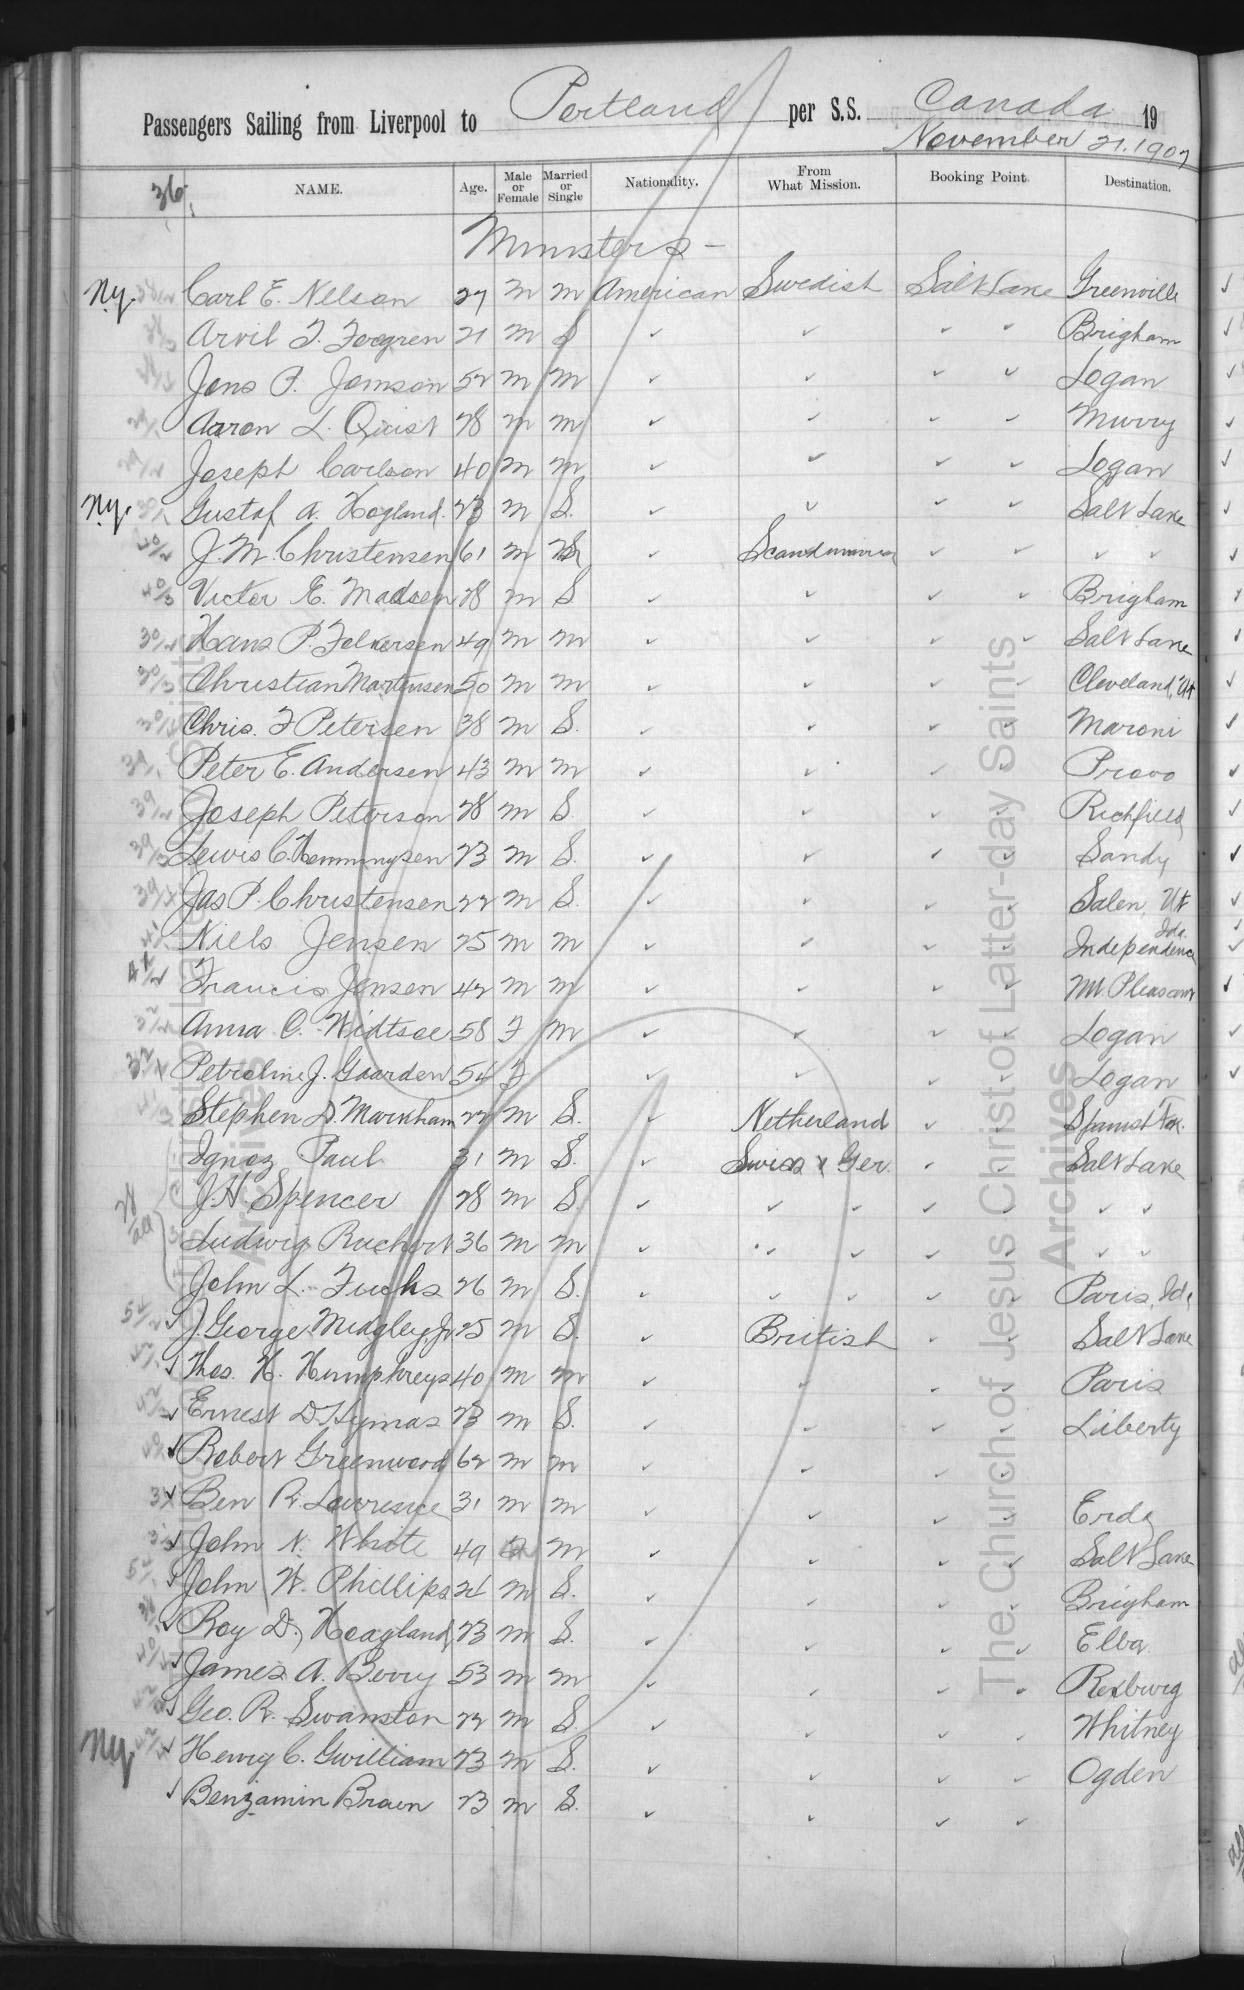 Passengers Sailing from Liverpool to Portland per S.S. Canada 19
November 21. 1907
36. NAME. Age. Male or Female Married or Single Nationality. From What Mission. Booking Point. Destination.
Ministers -
N.y. Carl E. Nelson 27 m m American Swedish Salt Lake Greenville
Arvil T. Forgren 21 m S ✓ ✓ ✓ ✓ Brigham
Jens P. Jomson 52 m m ✓ ✓ ✓ ✓ Logan
Aaron L. Quist 28 m m ✓ ✓ ✓ ✓ Murry
Joseph Carlson 40 m m ✓ ✓ ✓ ✓ Logan
N.y. Gustaf A. Hogland. 23 m S. ✓ ✓ ✓ ✓ Salt Lake
J. M. Christensen 61 m ✓ Scandinavian ✓ ✓ ✓ ✓
Victor E. Madsen 28 m S ✓ ✓ ✓ ✓ Brigham
Hans P. Folkersen 49 m m ✓ ✓ ✓ ✓ Salt Lake
Christian Mortensen 50 m m ✓ ✓ ✓ ✓ Cleveland, Ut
Chris. F Petersen 38 m S. ✓ ✓ ✓ ✓ Maroni
Peter E. Andersen 43 m m ✓ ✓ ✓ ✓ Provo
Joseph Peterson 28 m S. ✓ ✓ ✓ ✓ Richfield
Lewis C. Hemmingsen 23 m S. ✓ ✓ ✓ ✓ Sandy
Jas P. Christensen 22 m S. ✓ ✓ ✓ ✓ Salen, Ut
Niels Jensen 25 m m ✓ ✓ ✓ ✓ Independence Ida.
Francis Jensen 42 m m ✓ ✓ ✓ ✓ Mt. Pleasant
Anna C. Widtsoe 58 F m ✓ ✓ ✓ ✓ Logan
Petroline J. Gaarden 54 F ✓ ✓ ✓ ✓ Logan
Stephen D. Markham 22 m S. ✓ Netherland ✓ ✓ Spanish Fok.
Ignaz Paul 31 m S. ✓ Swiss & Ger. ✓ ✓ Salt Lake
28 all J. H. Spencer 28 m S. ✓ ✓ ✓ ✓ ✓ ✓ ✓
Ludwig Ruchert 36 m m ✓ ✓ ✓ ✓ ✓ ✓ ✓
John L. Fuchs 26 m S. ✓ ✓ ✓ ✓ ✓ Paris, Ida
✓ J. George Midgley Jr 25 m S. ✓ British ✓ ✓ Salt Lake
✓ Thos. H. Humphreys 40 m m ✓ ✓ ✓ ✓ Paris
✓ Ernest D Hymas 23 m S. ✓ ✓ ✓ ✓ Liberty
✓ Robert Greenwood 62 m m ✓ ✓ ✓ ✓
✓ Ben R. Lawrence 31 m m ✓ ✓ ✓ ✓ Erda
✓ John N. White 49 m ✓ ✓ ✓ ✓ Salt Lake
✓ John W. Phillips 21 m S. ✓ ✓ ✓ ✓ Brigham
✓ Roy D. Hoagland 23 m S. ✓ ✓ ✓ ✓ Elba
✓ James A. Berry 53 m m ✓ ✓ ✓ ✓ Rexburg
✓ Geo. R. Swanston 22 m S. ✓ ✓ ✓ ✓ Whitney
N.y. ✓ Henry C. Gwilliam 23 m S. ✓ ✓ ✓ ✓ Ogden
✓ Benjamin Brown 23 m S. ✓ ✓ ✓ ✓
The Church of Jesus Christ of Latter-day Saints
Archives